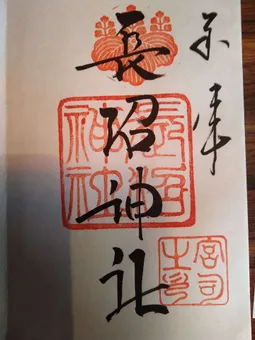 長沼神社
長沼
神社
宮司
之印